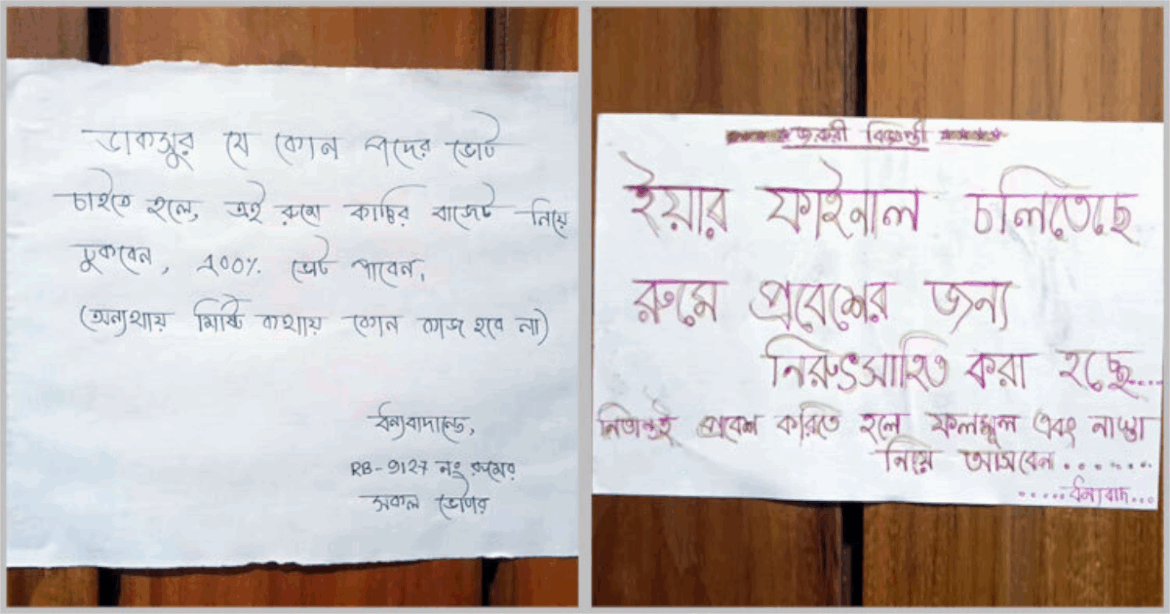 ডাকসুর যে কোন পদের ভোট
চাইতে হলে, এই রুমে কাচ্চির বাজেট নিয়ে
ঢুকবেন, ১০০% ভোট পাবেন,
(অন্যথায় মিষ্টি কথায় কোন কাজ হবে না)
ধন্যবাদান্তে,
RB-9127 নং রুমের
সকল ভোটার
জরুরী বিজ্ঞপ্তী
ইয়ার ফাইনাল চলিতেছে
রুমে প্রবেশের জন্য
নিরুৎসাহিত করা হচ্ছে....
নিতান্তই প্রবেশ করিতে হলে ফলমূল এবং নাস্তা
নিয়ে আসবেন........
.....ধন্যবাদ...